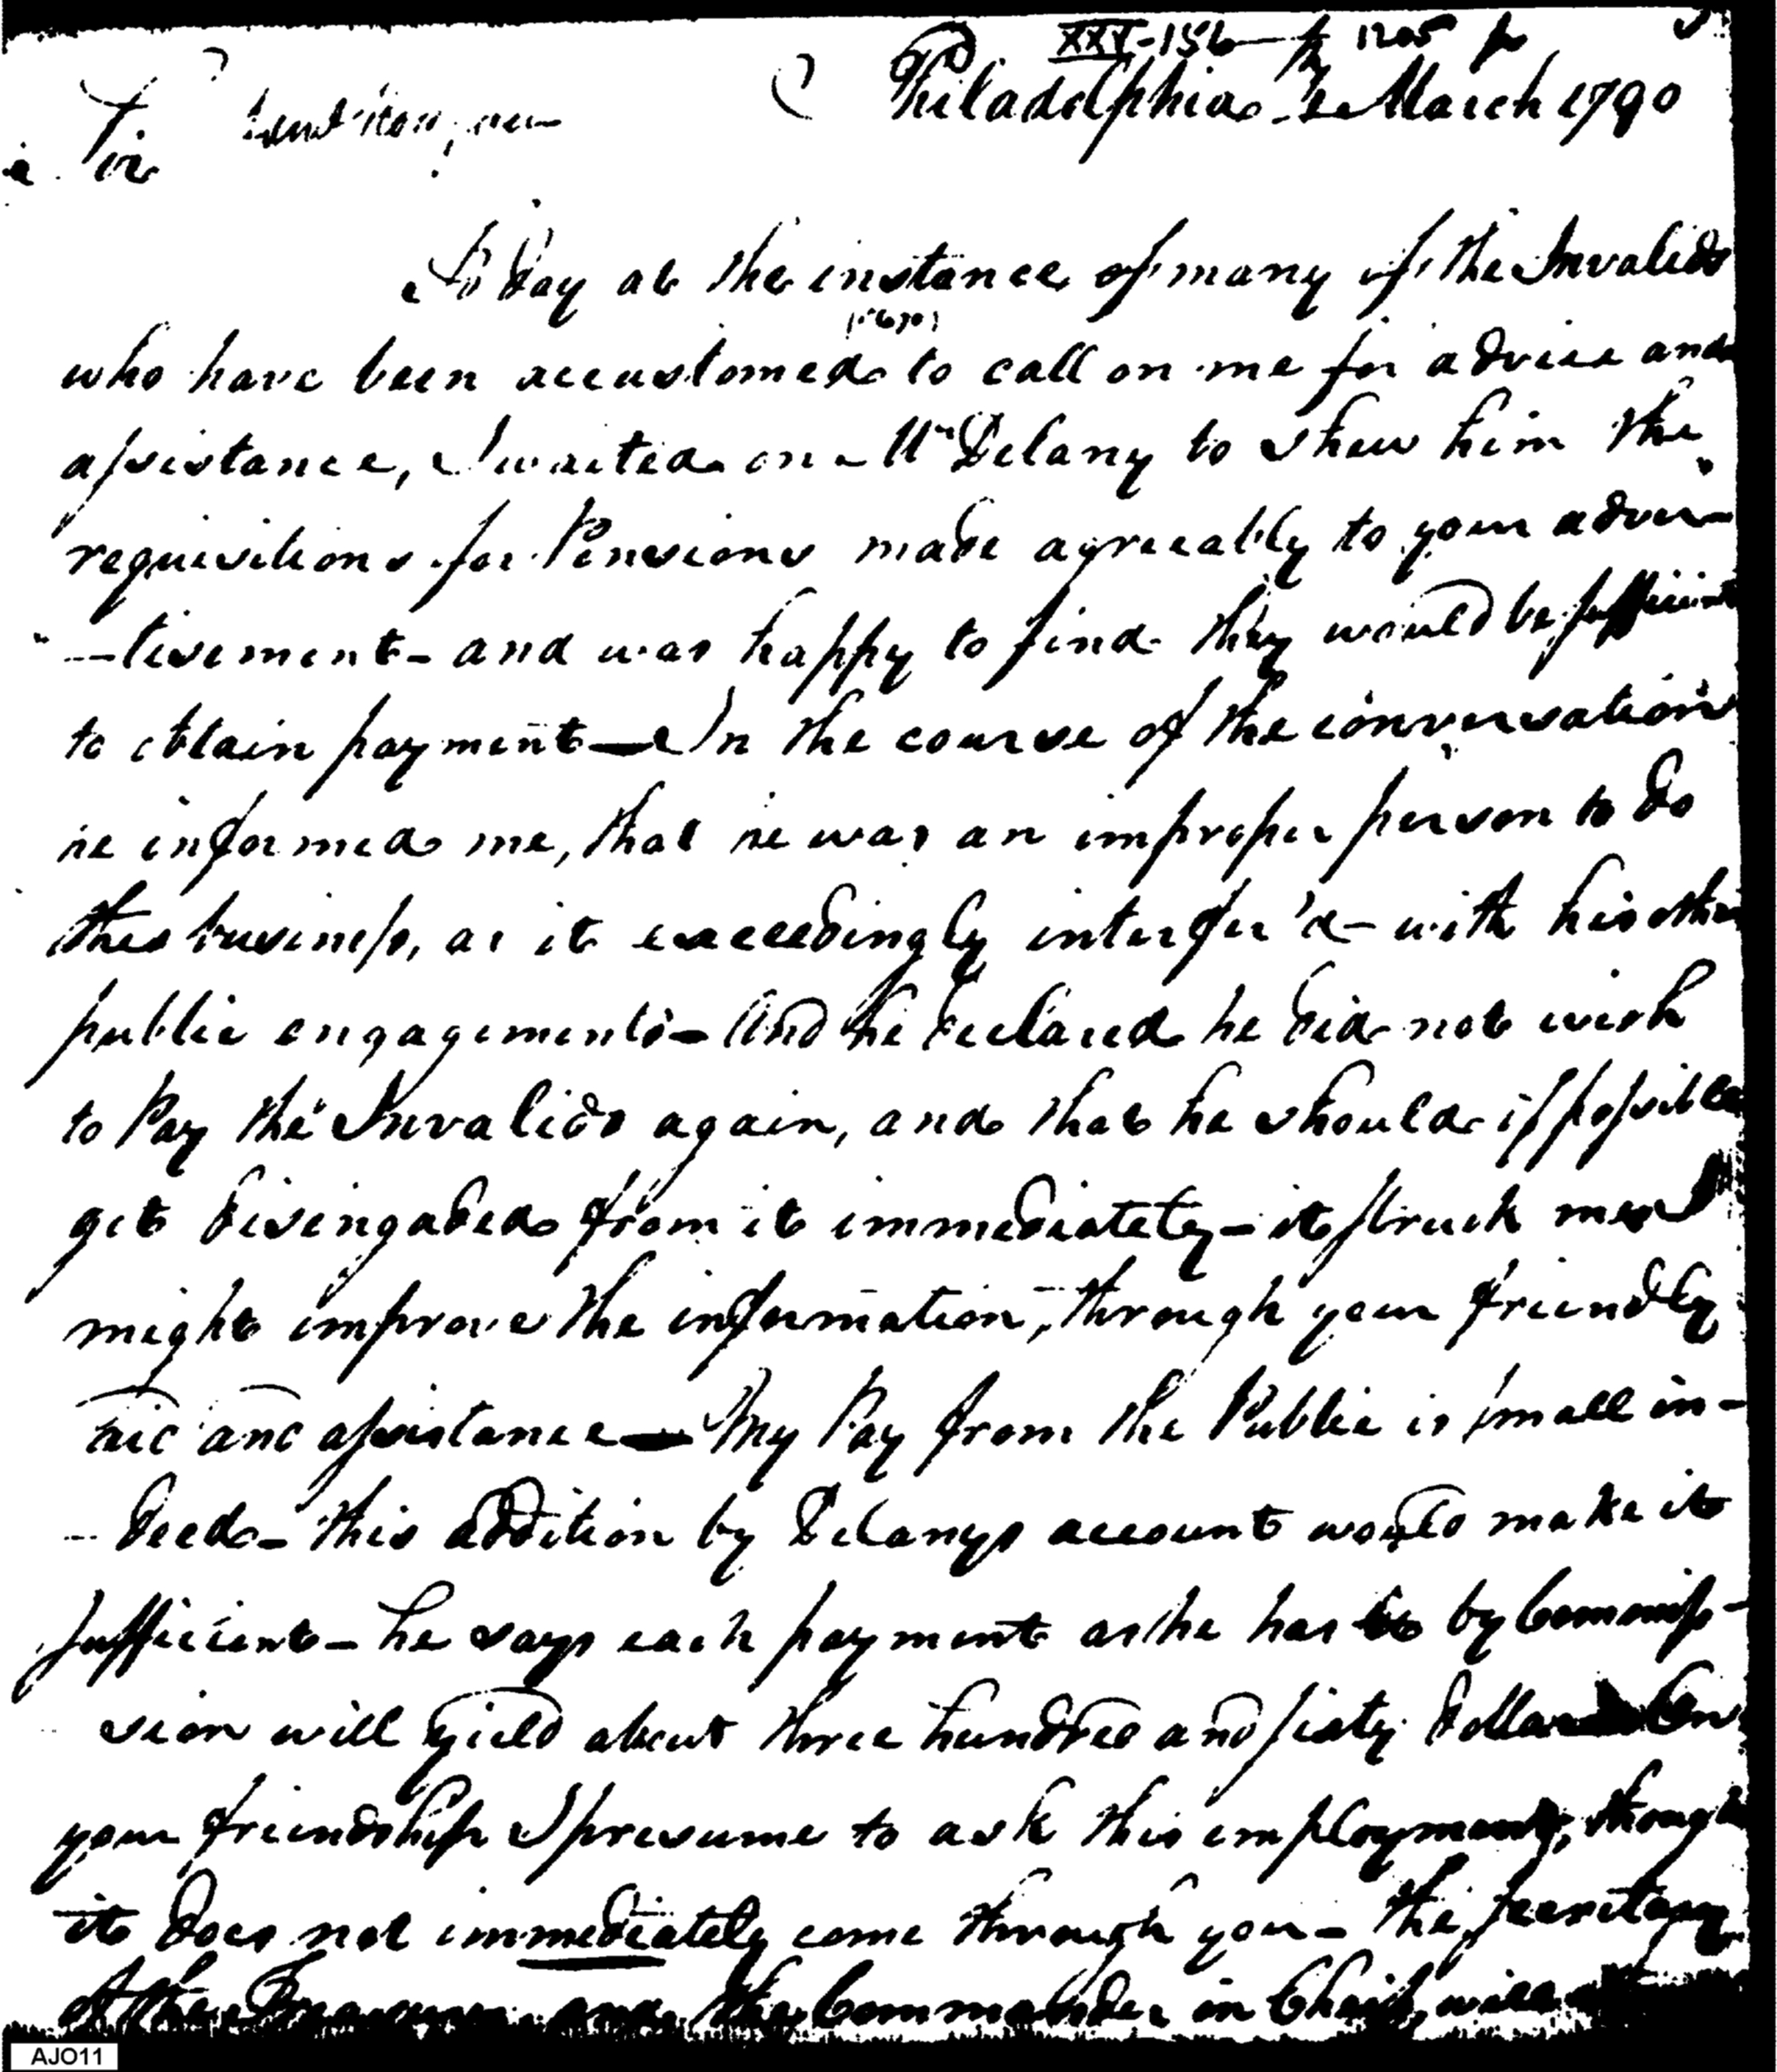 XXV-156
Philadelphia March 1790
Sir
To Day at the instance of many of the Invalids
who have been accustomed to call on me for advice and
assistance, I waited on Mr Delany to shew him the
requisitions for Pensions made agreeably to your adver-
-tisement - and was happy to find they would be sufficient
to obtain payment — In the course of the conversation
he informed me, that he was an improper person to do
this business, as it exceedingly interfer'd - with his other
public engagements - And he declared he did not wish
to Pay the Invalids again, and that he should if possible
get disengaded from it immediately - it struck me I
might improve the information, through your friendly
aid and assistance — My Pay from the Public is small in-
- deed - this addition by Delanys account would make it
sufficient - he says each payment as he has by Commis-
sion will yield about three hundred and sixty Dollars On
your friendship I presume to ask this employment, though
it does not immediately come through you - the secretary
of the Treasury and the Commander in Cheif, will
AJO11